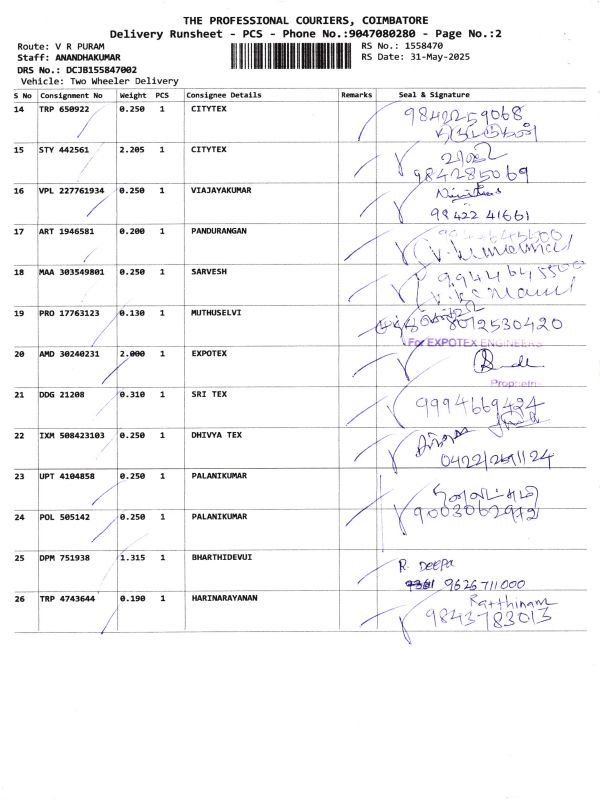 THE PROFESSIONAL COURIERS, COIMBATORE
Delivery Runsheet - PCS - Phone No.:9047080280 - Page No.:2
Route: V R PURAM RS No.: 1558470
Staff: ANANDHAKUMAR RS Date: 31-May-2025
DRS No.: DCJB155847002
Vehicle: Two Wheeler Delivery
S No Consignment No Weight PCS Consignee Details Remarks Seal & Signature
14 TRP 650922 0.250 1 CITYTEX 9842259068
15 STY 442561 2.205 1 CITYTEX
9842285069
16 VPL 227761934 0.250 1 VIAJAYAKUMAR
98422 41661
17 ART 1946581 0.200 1 PANDURANGAN
18 MAA 303549801 0.250 1 SARVESH 9944645500
19 PRO 17763123 0.130 1 MUTHUSELVI 8012530420
For EXPOTEX ENGINEERS
20 AMD 30240231 2.000 1 EXPOTEX
21 DDG 21208 0.310 1 SRI TEX 9994669424
22 IXM 508423103 0.250 1 DHIVYA TEX
23 UPT 4104858 0.250 1 PALANIKUMAR
24 POL 505142 0.250 1 PALANIKUMAR 9003062972
25 DPM 751938 1.315 1 BHARTHIDEVUI R. DEEPA
9626711000
26 TRP 4743644 0.190 1 HARINARAYANAN Ratthinam
9843783013